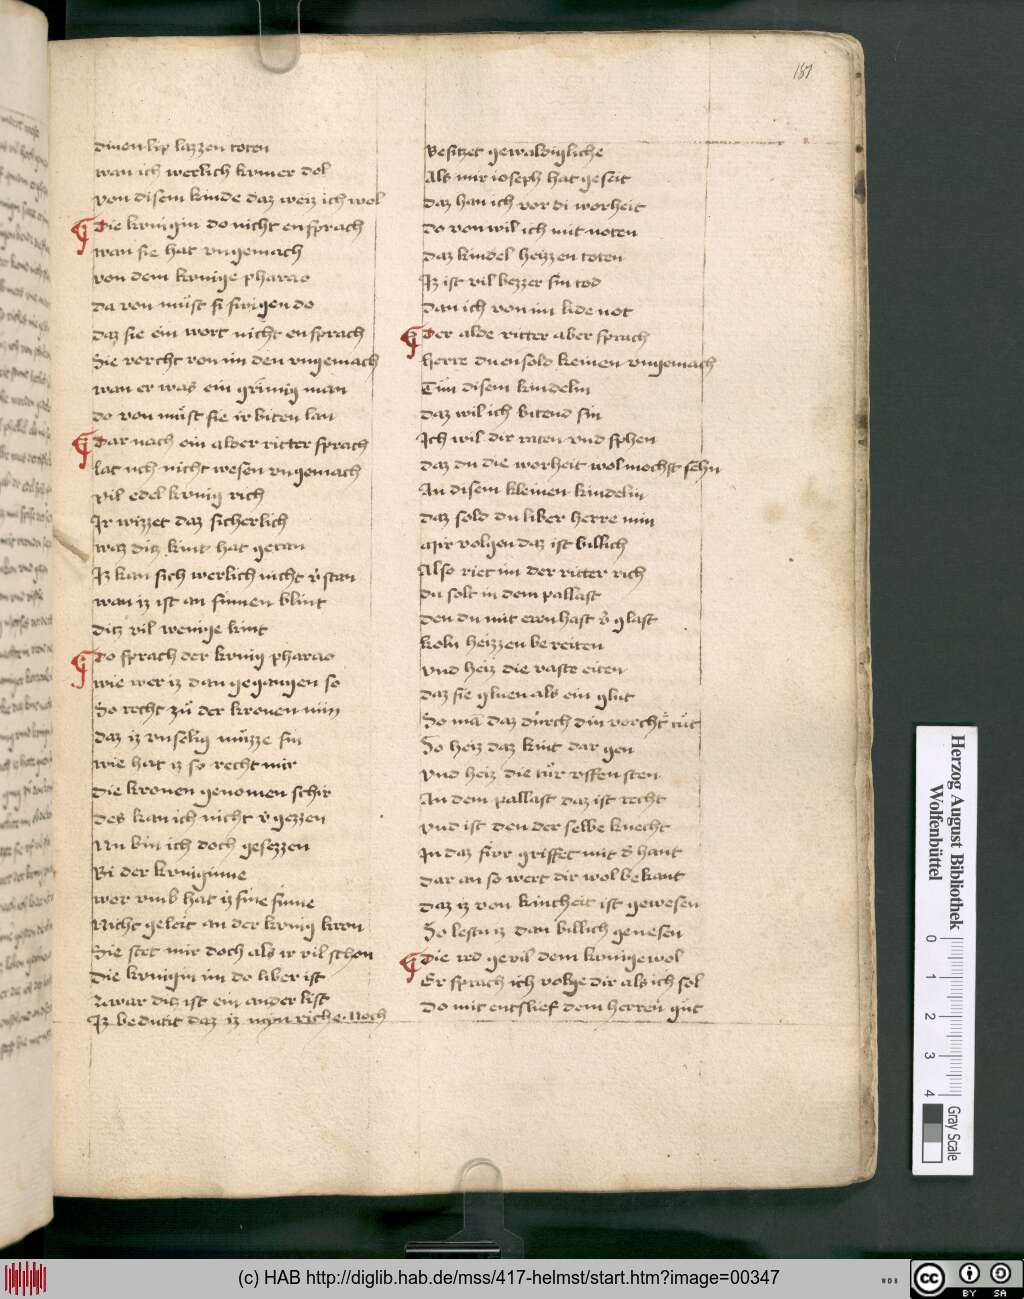 187
dinen lip lazzen toten
wan ich werlich kvmer dol
von disem kinde daz weiz ich wol
Die kvnigin do nicht en sprach
wan sie hat vngemach
von dem kvnige pharao
da von mu͂st si swigen do
daz sie ein wort nicht en sprach
Sie vorcht von im den vngemach
wan er was ein grimig man
do von mu͂st sie ir biten lan
Dar nach ein alder ritter sprach
lat uch nicht wesen vngemach
vil edel kvnig rich
Ir wizzet daz sicherlich
waz ditz kint hat getan
Iz kan sich werlich nicht v̄stan
wan iz ist an sinnen blint
ditz vil wenige kint
Do sprach der kvnig pharao
wie wer iz dan gegangen so
So recht zu͂ der kronen min
daz iz vnselig mu͂zze sin
wie hat iz so recht mir
die kronen genomen schir
des kan ich nicht v̄gezzen
Nu bin ich doch gesezzen
Bi der kvniginne
wor vmb hat iz sine sinne
Nicht geleit an der kvnig kron
Sie stet mir doch als ir vil schon
die kvnigin im do liber ist
Zwar ditz ist ein ander list
Iz bedutit daz iz myn riche. Noch
Besitzet gewaldigliche
Als mir ioseph hat geseit
daz han ich vor di worheit
do von wil ich mit noten
daz kindel heizzen toten
Iz ist vil bezzer sin tod
dan ich von im lide not
Der alde ritter aber sprach
herre du en sold keinen vngemach
Tun disem kindelin
daz wil ich bitend sin
Ich wil dir raten vnd sphen
daz du die worheit wol mochst sehn
An disem kleinen kindelin
daz sold du liber herre min
Mir volgen daz ist billich
Also riet im der ritter rich
du solt in dem pallast
den du mit ern hast v̄glast
koln heizzen bereiten
vnd heiz die vaste eiten
daz sie gluen als ein glut
So heiz daz kint dar gen
vnd heiz die tu͂r vffen sten
An dem pallast daz ist recht
vnd ist den der selbe knecht
In daz fivr griffet mit d̄ hant
dar an so wert dir wol bekant
daz iz von kintheit ist gewesen
So lestu iz dan billich genesen
Die red gevil dem kvnige wol
Er sprach ich volge dir als ich sol
Do mit entslief dem herren gut
Herzog August Bibliothek
Wolfenbüttel
0 1 2 3 4
Gray Scale
(c) HAB http://diglib.hab.de/mss/417-helmst/start.htm?image=00347
WDB
cc BY SA